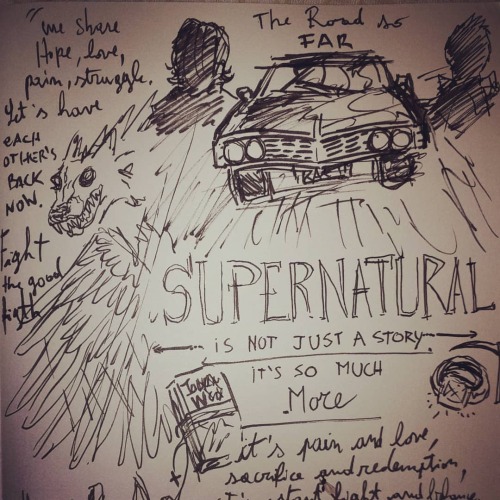 "we share
Hope, love,
pain, struggle.
Let's have
EACH
OTHER'S
BACK
NOW.
Fight
the good
fight
The Road so
FAR
SUPERNATURAL
IS NOT JUST A STORY
IT'S SO MUCH
More
it's pain and love,
sacrifice and redemption,